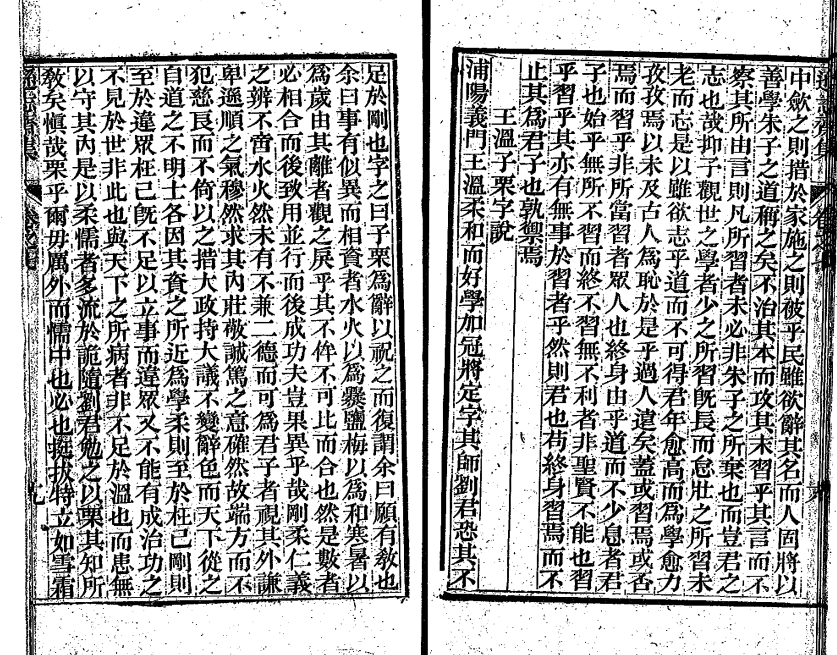 中歛之則措於家施之則被乎民雖欲辭其名而人固將以
善學朱子之道稱之矣不治其本而攻其末習乎其言而不
察其所由言則凡所習者未必非朱子之所棄也而豈君之
志也哉抑予觀世之學者少之所習旣長而怠壯之所習未
老而忘是以雖欲志乎道而不可得君年愈高而爲學愈力
孜孜焉以未及古人爲恥於是乎過人遠矣蓋或習焉或否
焉而習乎非所當習者眾人也終身由乎道而不少息者君
子也始乎無所不習而終不習無不利者非聖賢不能也習
乎習乎其亦有無事於習者乎然則君也苟終身習焉而不
止其爲君子也孰禦焉
王溫子栗字說
浦陽義門王溫柔和而好學加冠將定字其師劉君恐其不
足於剛也字之曰子栗爲辭以祝之而復謂余曰願有敎也
余曰事有似異而相資者水火以爲爨鹽梅以爲和寒暑以
爲歲由其離者觀之戾乎其不侔不可比而合也然是數者
必相合而後致用並行而後成功夫豈果異乎哉剛柔仁義
之辨不啻水火然未有不兼二德而可爲君子者視其外謙
卑遜順之氣穆然求其內莊敬誠篤之意確然故端方而不
犯慈長而不倚以之措大政持大議不變辭色而天下從之
自道之不明士各因其資之所近爲學柔則至於枉己剛則
至於違眾枉己旣不足以立事而違眾又不能有成治功之
不見於世非此也與天下之所病者非不足於溫也而患無
以守其內是以柔懦者多流於詭隨劉君勉之以栗其知所
敎矣愼哉栗乎爾毋厲外而懦中也必也挺拔特立如雪霜
遜志齋集
九